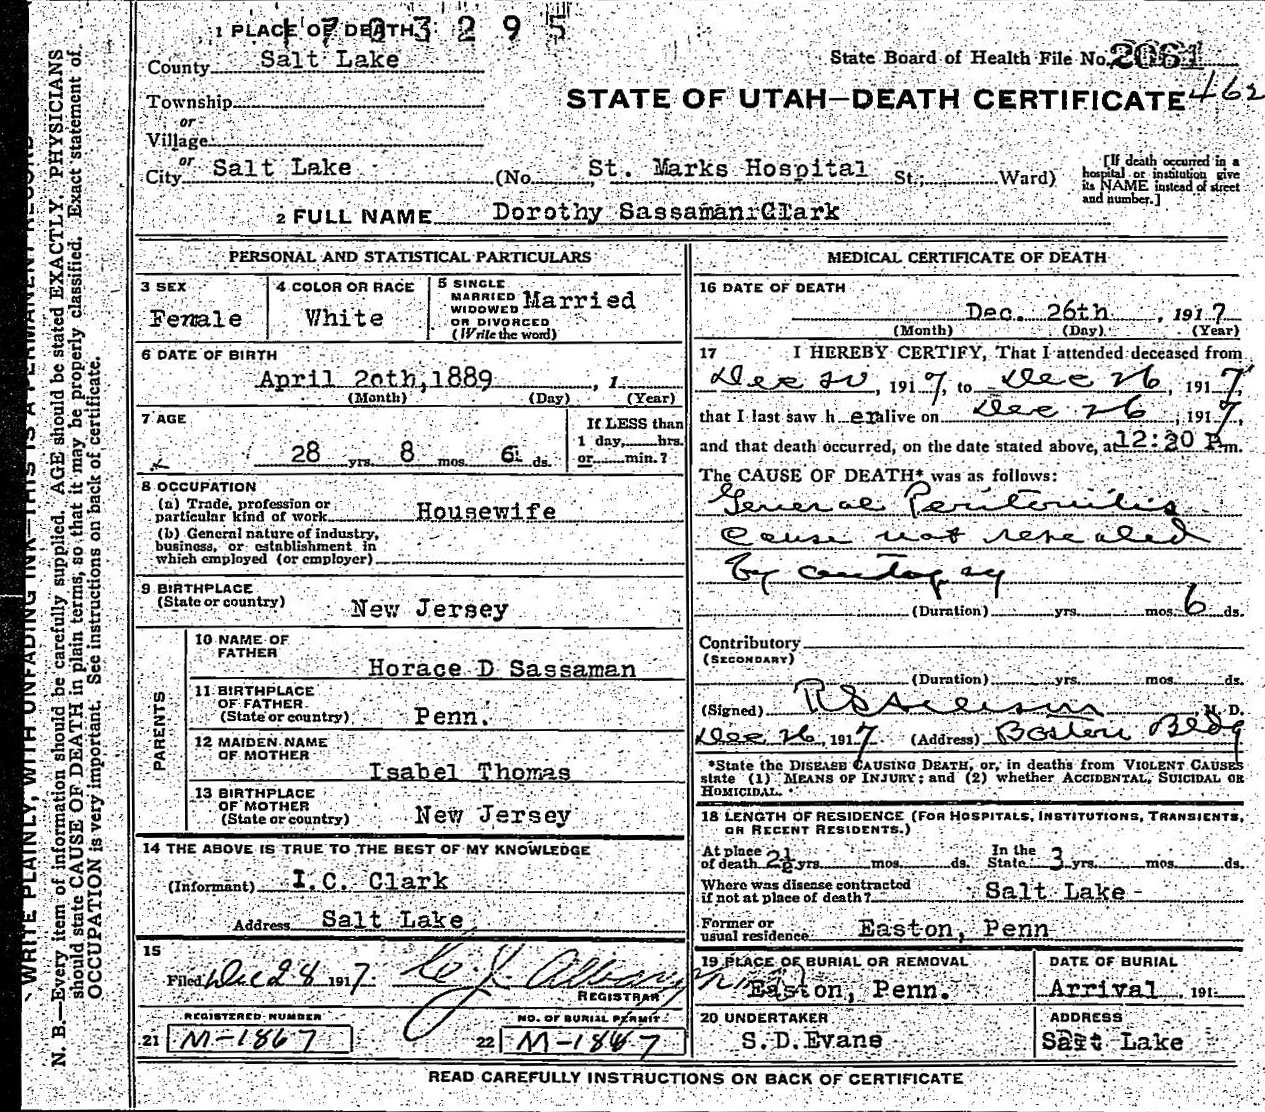 1 PLACE OF DEATH
1703295
County Salt Lake
State Board of Health File No. 2061
Township
STATE OF UTAH—DEATH CERTIFICATE 462
or
Village
or
City Salt Lake (No. St. Marks Hospital St.; Ward)
[If death occurred in a hospital or institution give its NAME instead of street and number.]
2 FULL NAME Dorothy Sassaman Clark
PERSONAL AND STATISTICAL PARTICULARS
3 SEX Female
4 COLOR OR RACE White
5 SINGLE MARRIED WIDOWED OR DIVORCED (Write the word) Married
6 DATE OF BIRTH
April 20th, 1889 , 1
(Month) (Day) (Year)
7 AGE
28 yrs. 8 mos. 6 ds.
If LESS than 1 day, hrs. or min.?
8 OCCUPATION
(a) Trade, profession or particular kind of work Housewife
(b) General nature of industry, business, or establishment in which employed (or employer)
9 BIRTHPLACE (State or country) New Jersey
PARENTS
10 NAME OF FATHER Horace D Sassaman
11 BIRTHPLACE OF FATHER (State or country) Penn.
12 MAIDEN NAME OF MOTHER Isabel Thomas
13 BIRTHPLACE OF MOTHER (State or country) New Jersey
14 THE ABOVE IS TRUE TO THE BEST OF MY KNOWLEDGE
(Informant) I.C. Clark
Address Salt Lake
15
Filed Dec 28 1917.
REGISTRAR
REGISTERED NUMBER
21 M-1867
NO. OF BURIAL PERMIT
22 M-1867
MEDICAL CERTIFICATE OF DEATH
16 DATE OF DEATH
Dec. 26th , 1917
(Month) (Day) (Year)
17 I HEREBY CERTIFY, That I attended deceased from
Dec 20, 1917, to Dec 26, 1917,
that I last saw her alive on Dec 26, 1917,
and that death occurred, on the date stated above, at 12:20 P.m.
The CAUSE OF DEATH* was as follows:
General Peritonitis
cause not revealed
by autopsy
(Duration) yrs. mos. 6 ds.
Contributory
(SECONDARY)
(Duration) yrs. mos. ds.
(Signed) M. D.
Dec 26, 1917. (Address) Boston Bldg
*State the DISEASE CAUSING DEATH, or, in deaths from VIOLENT CAUSES
state (1) MEANS OF INJURY; and (2) whether ACCIDENTAL, SUICIDAL OR
HOMICIDAL.
18 LENGTH OF RESIDENCE (FOR HOSPITALS, INSTITUTIONS, TRANSIENTS, OR RECENT RESIDENTS.)
At place of death 2½ yrs. mos. ds. In the State 3 yrs. mos. ds.
Where was disease contracted if not at place of death? Salt Lake
Former or usual residence Easton, Penn
19 PLACE OF BURIAL OR REMOVAL
Easton, Penn.
DATE OF BURIAL
Arrival , 191
20 UNDERTAKER
S.D.Evans
ADDRESS
Salt Lake
READ CAREFULLY INSTRUCTIONS ON BACK OF CERTIFICATE
WRITE PLAINLY, WITH UNFADING INK—THIS IS A PERMANENT RECORD
N. B.—Every item of information should be carefully supplied. AGE should be stated EXACTLY. PHYSICIANS
should state CAUSE OF DEATH in plain terms, so that it may be properly classified. Exact statement of
OCCUPATION is very important. See instructions on back of certificate.